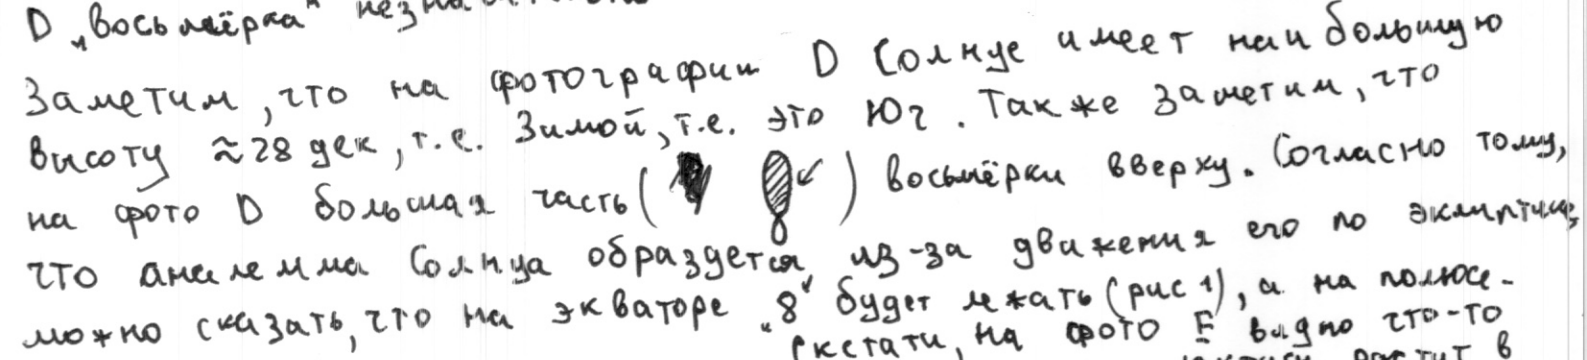 D „восьмёрка"
Заметим, что на фотографии D Солнце имеет наибольшую
высоту ≈28 дек, т.е. Зимой, т.е. это Юг. Также заметим, что
на фото D большая часть ( ) восьмёрки вверху. Согласно тому,
что аналемма Солнца образдется из-за движения его по эклиптике,
можно сказать, что на экваторе „8" будет лежать (рис 1), а на полюсе-
(кстати, на фото E видно что-то
растит в